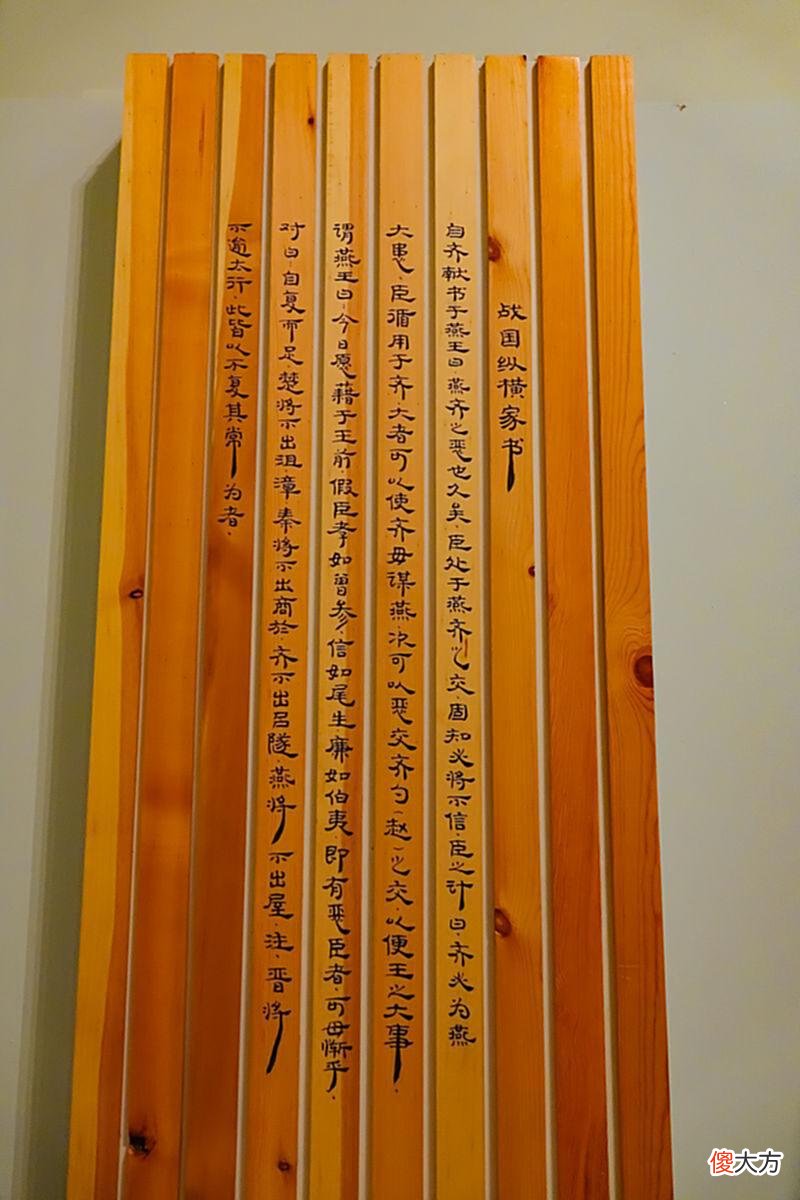 战国纵横家书
自齐献书于燕王曰·燕齐之恶也久矣·臣处于燕齐之交·固知必将不信·臣之计曰·齐必为燕
大患·臣循用于齐·大者可以使齐毋谋燕·次可以恶交齐勺(赵)之交·以便王之大事·
谓燕王曰·今日愿藉于王前·假臣孝如曾参·信如尾生·廉如伯夷·即有恶臣者·可毋惭乎·
对曰·自复而足·楚将不出沮·漳·秦将不出商於·齐不出吕隧·燕将不出屋·注·晋将
不逾太行·此皆以不复其常为者·
傻大方